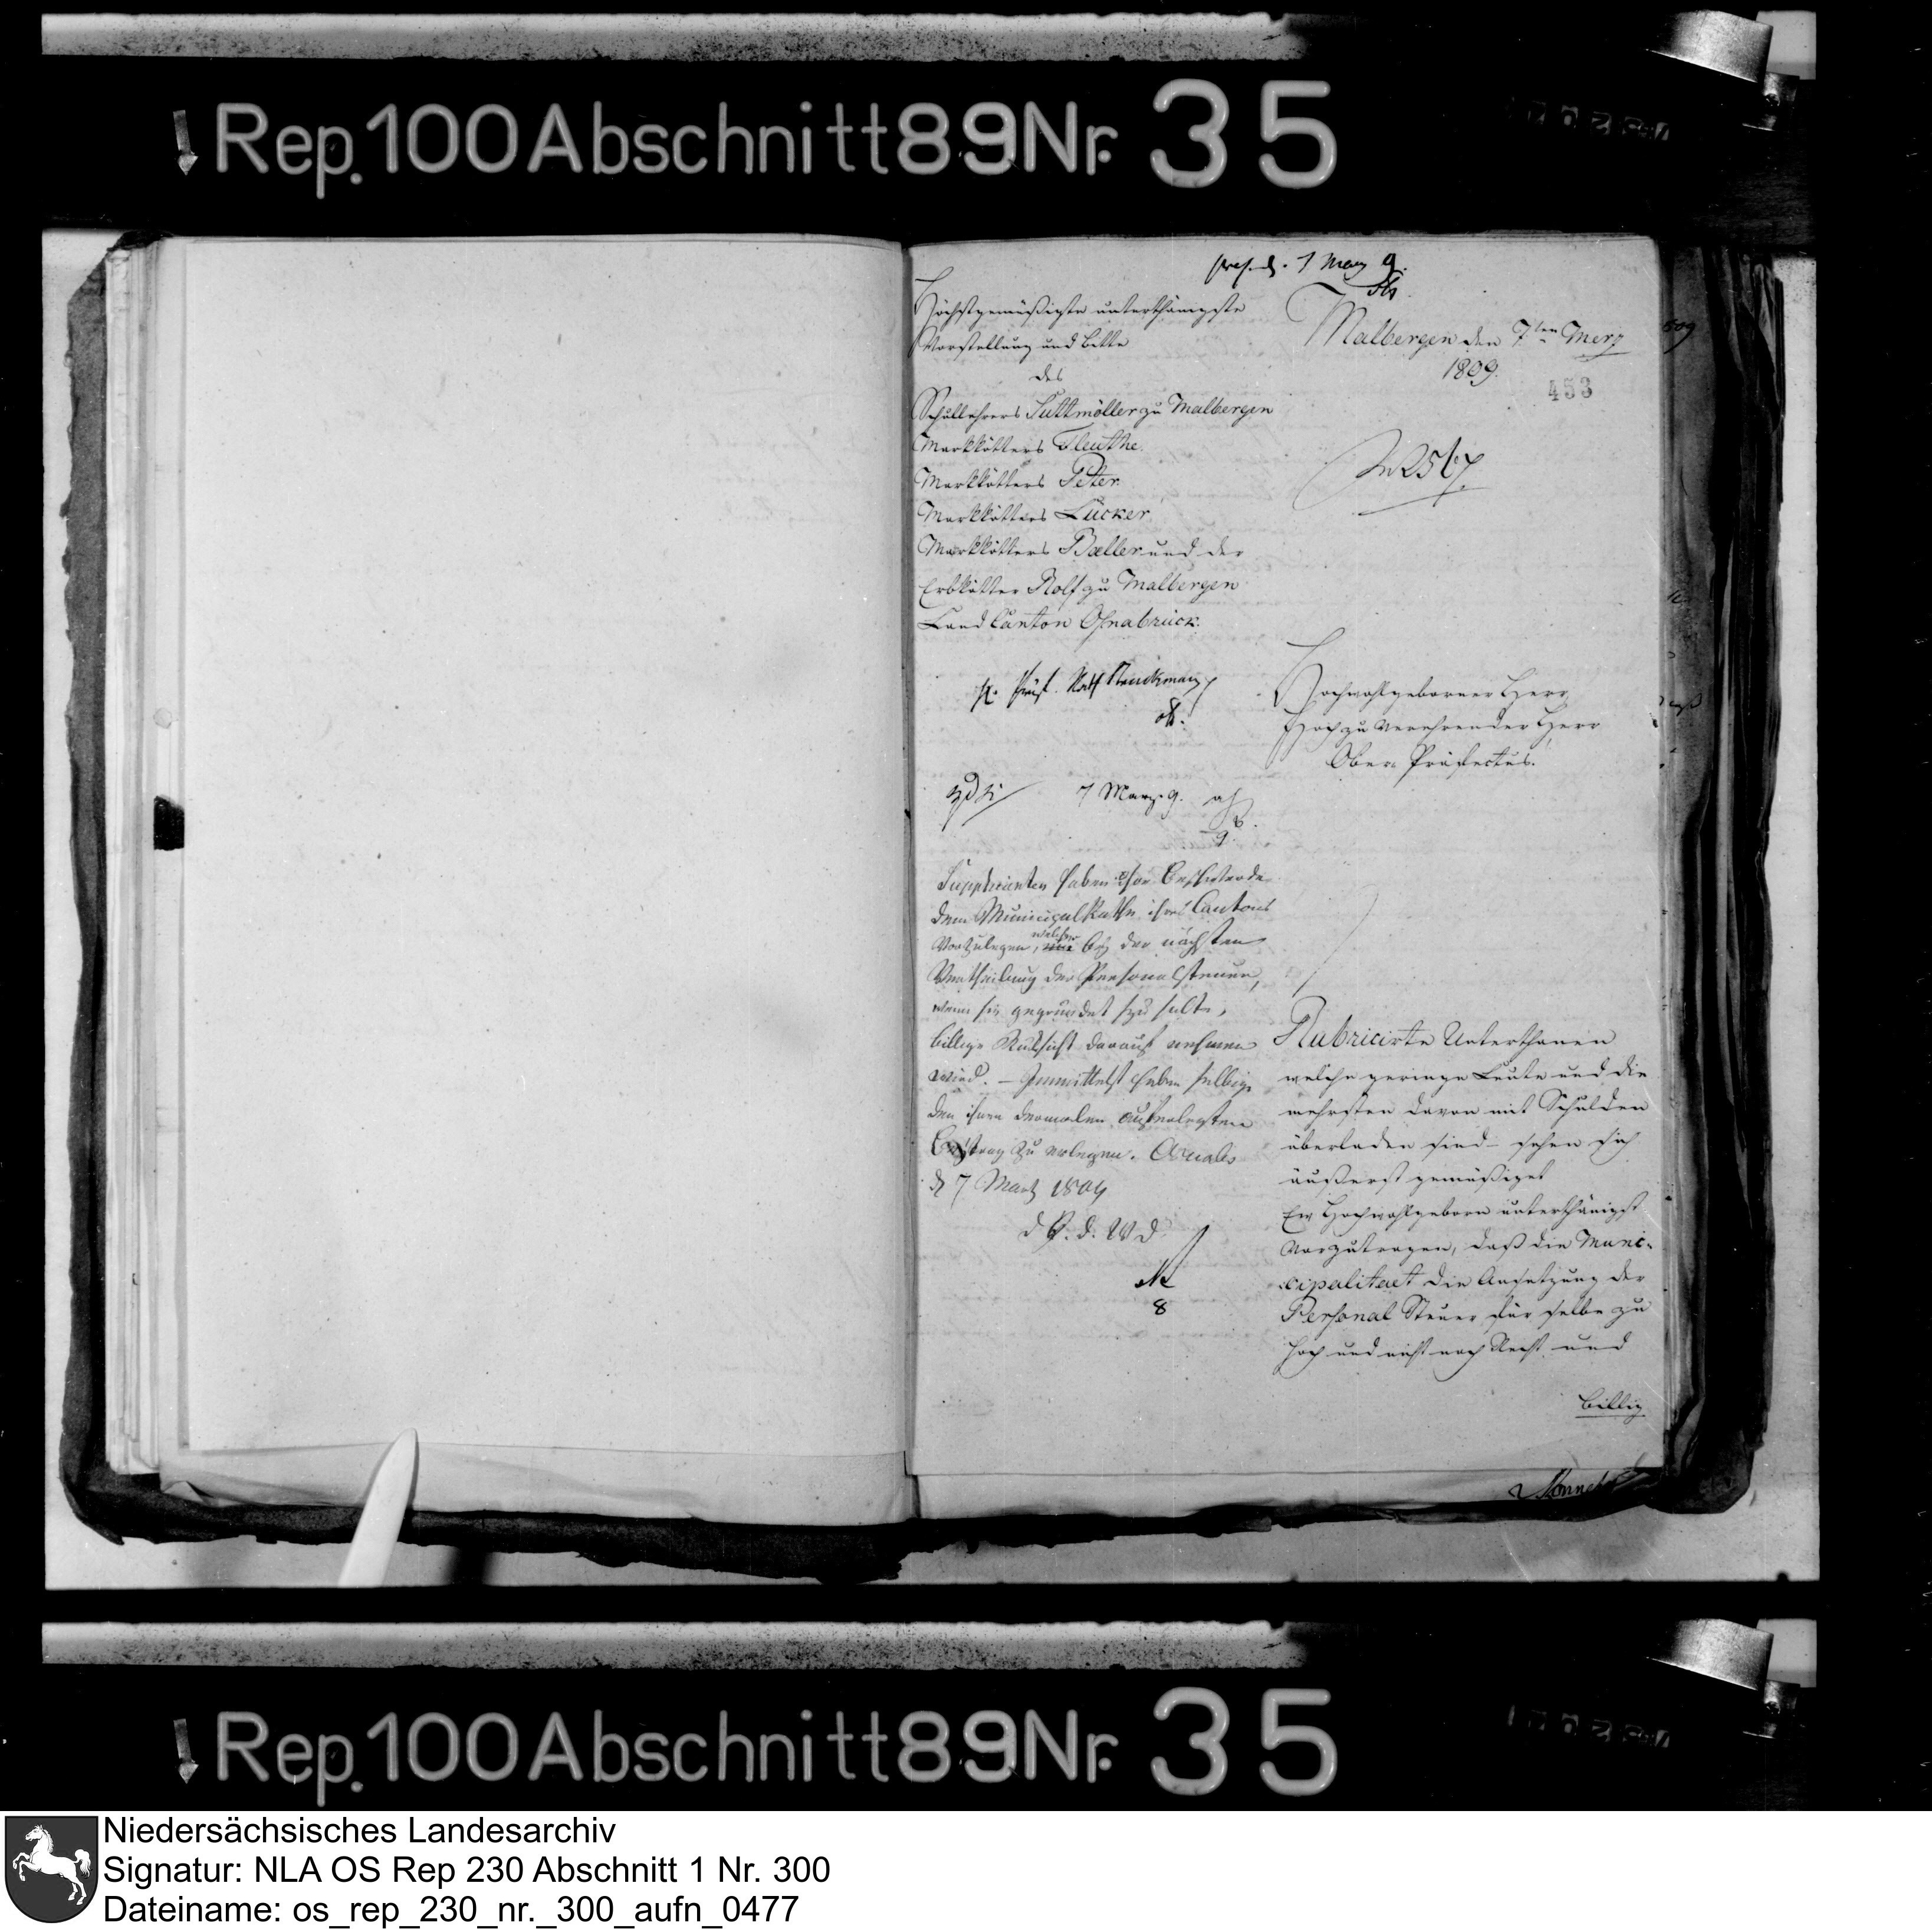 Rep. 100 Abschnitt 89 Nr. 35
praes. d. 7 Marz 9.
Höchstgemüßigte unterthänigste
Vorstellung und Bitte
des
Schullehrers Suttmöller zu Malbergen
Markkötters Fleuthe.
Markkötters Peter.
Markkötters Lücker.
Markkötters Bœller und der
Erbkötter Rolf zu Malbergen
Land Canton Osnabrück.
7 Marz 9.
Supplicanten haben ihre Beschwerde
dem Municipal Rathe ihres Cantons
vorzulegen, welcher bey der nächsten
Vertheilung der Personalsteuer,
wenn sie gegründet seyn sollte,
billige Rücksicht darauf nehmen
wird. – Inmittelst haben selbige
den ihnen dermalen auferlegten
Beytrag zu erlegen.
d 7 Martz 1809
8
Malbergen den 7ten Merz
1809.
453
N 2567.
Hochwohlgeborner Herr
Hoch zu Verehrender Herr
Ober Präfectus!
Rubricirte Unterthanen
welche geringe Leute und die
mehrsten davon mit Schulden
überladen sind – sehen sich
äußerst gemüßiget
Ew Hochwohlgeborn unterthänigst
vorzutragen, daß die Muni-
cipalitaet die Ansetzung der
Personal Steuer für selbe zu
hoch und nicht nach Recht und
billig
Rep. 100 Abschnitt 89 Nr. 35
Niedersächsisches Landesarchiv
Signatur: NLA OS Rep 230 Abschnitt 1 Nr. 300
Dateiname: os_rep_230_nr._300_aufn_0477